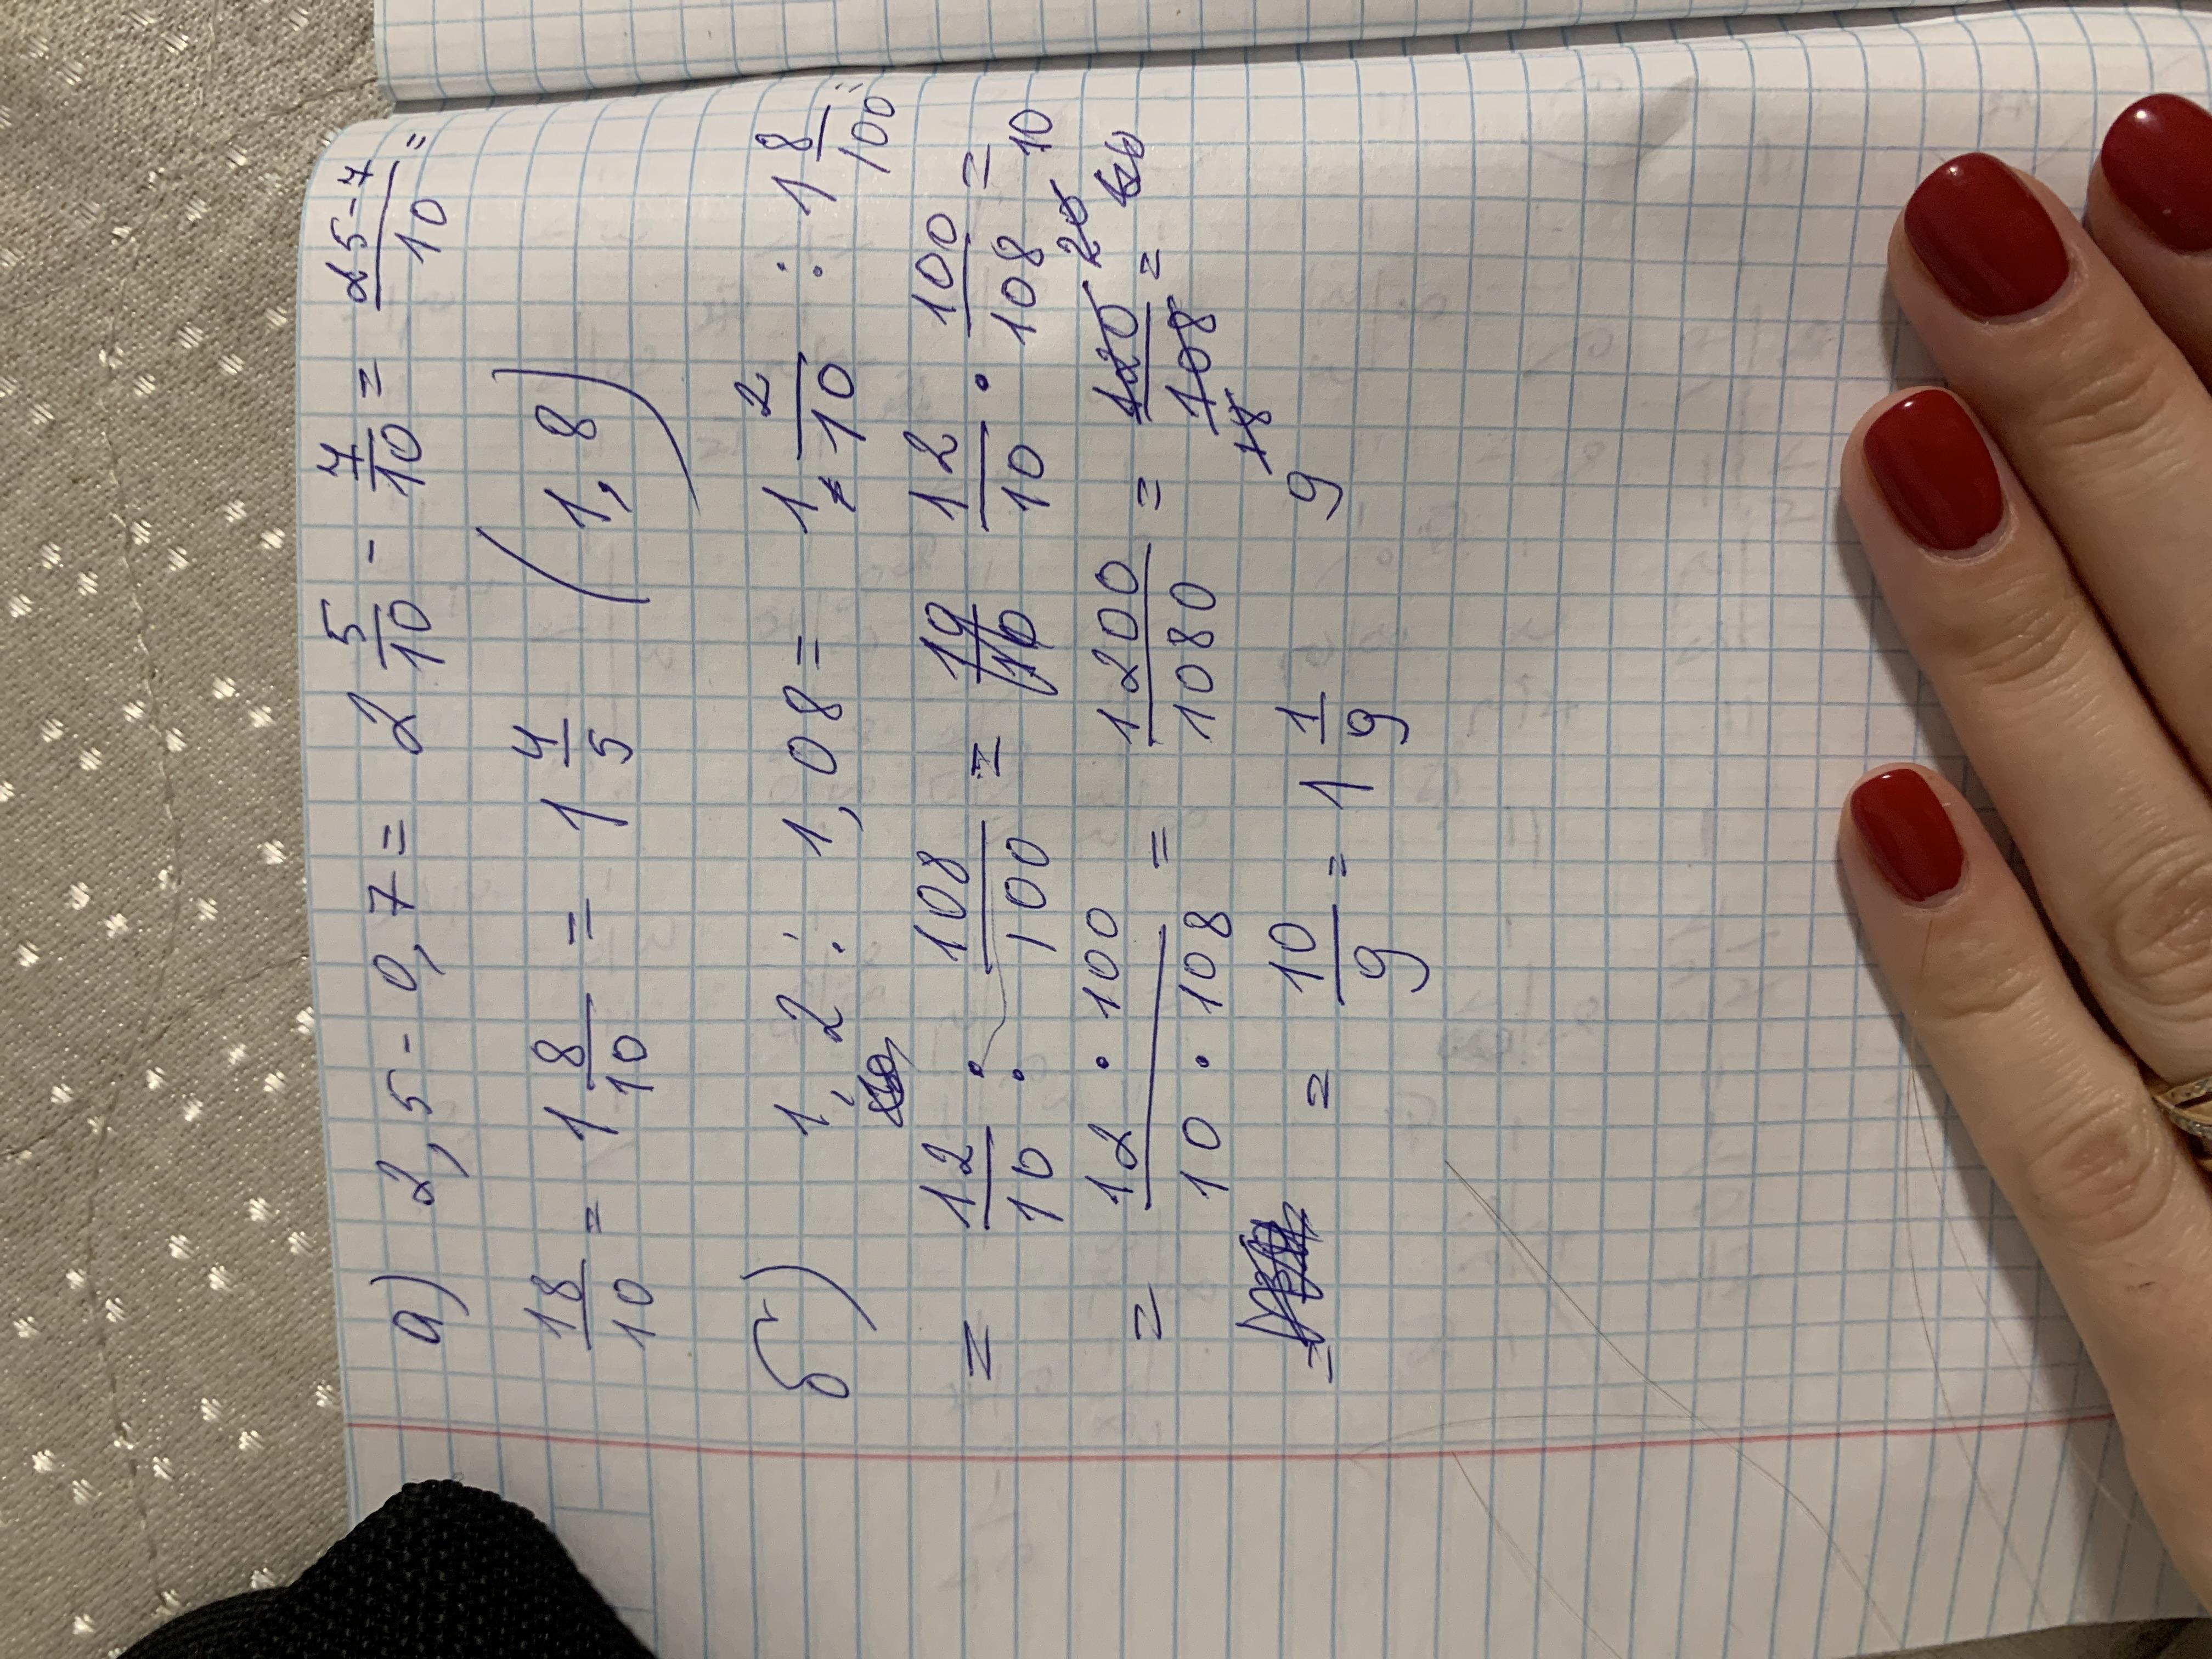 а) 2,5 - 0,7 = 2 5/10 - 7/10 = 25-7/10 =
18/10 = 1 8/10 = 1 4/5 (1,8)
б) 1,2 : 1,08 = 1 2/10 : 1 8/100 =
= 12/10 : 108/100 = 12/10 · 100/108 =
= 12 · 100/10 · 108 = 1200/1080 = 120/108 = 20 10 18 9
= 10/9 = 1 1/9